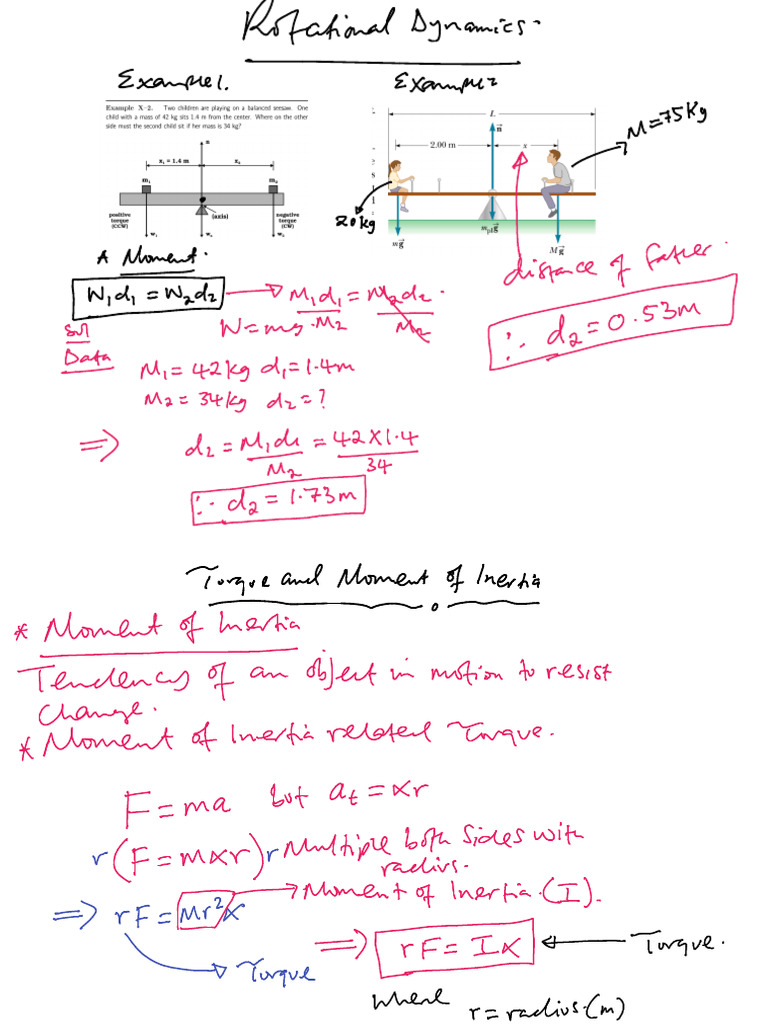 Rotational Dynamics.
Example 1.
Example 2
Example X-2. Two children are playing on a balanced seesaw. One
child with a mass of 42 kg sits 1.4 m from the center. Where on the other
side must the second child sit if her mass is 34 kg?
n
x₁ = 1.4 m
x₂
m₁
m₂
(axis)
positive
torque
(CCW)
negative
torque
(CW)
w₁
w₂
L
n
2.00 m
x
M=75Kg
20kg
mg
m_pl g
Mg
distance of father.
∴ d₂ = 0.53m
A Moment.
W₁d₁ = W₂d₂
M₁d₁ = M₂d₂.
M₂
M₂
W=mg.
Sol
Data
M₁ = 42kg d₁ = 1.4m
M₂ = 34kg d₂ = ?
⇒ d₂ = M₁d₁ = 42X1.4
M₂ 34
∴ d₂ = 1.73m
Torque and Moment of Inertia
* Moment of Inertia
Tendency of an object in motion to resist
change.
* Moment of Inertia related Torque.
F = ma but aₜ = αr
r(F = mαr)r Multiple both sides with
radius.
⇒ rF = Mr²α
Moment of Inertia.(I).
Torque
⇒ rF = Iα
Torque.
where r = radius.(m)